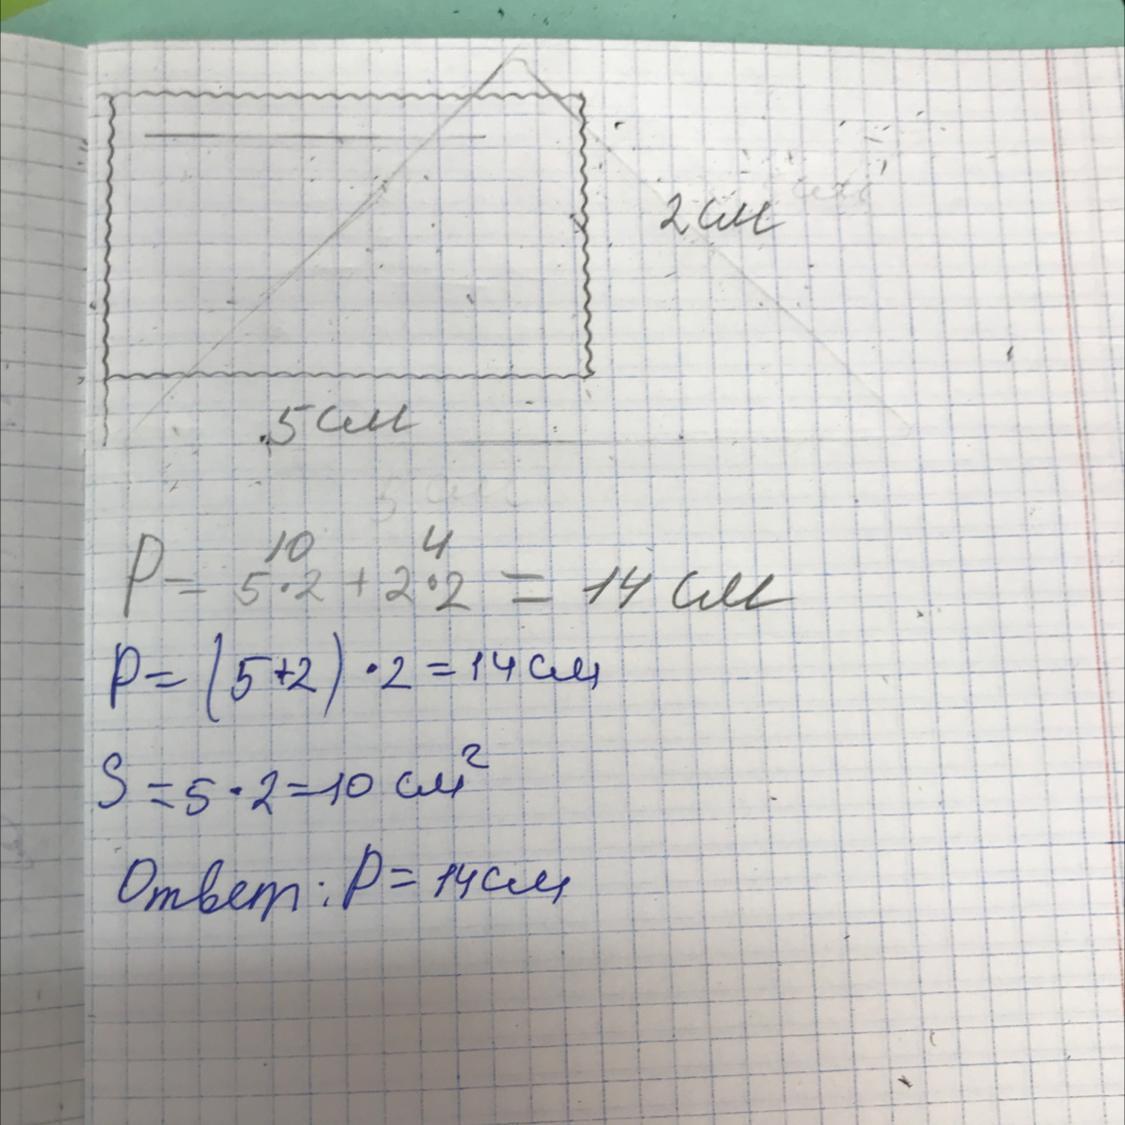 2 см
5 см
10 4
P = 5·2 + 2·2 = 14 см
P = (5+2) · 2 = 14 см
S = 5 · 2 = 10 см²
Ответ: P = 14 см